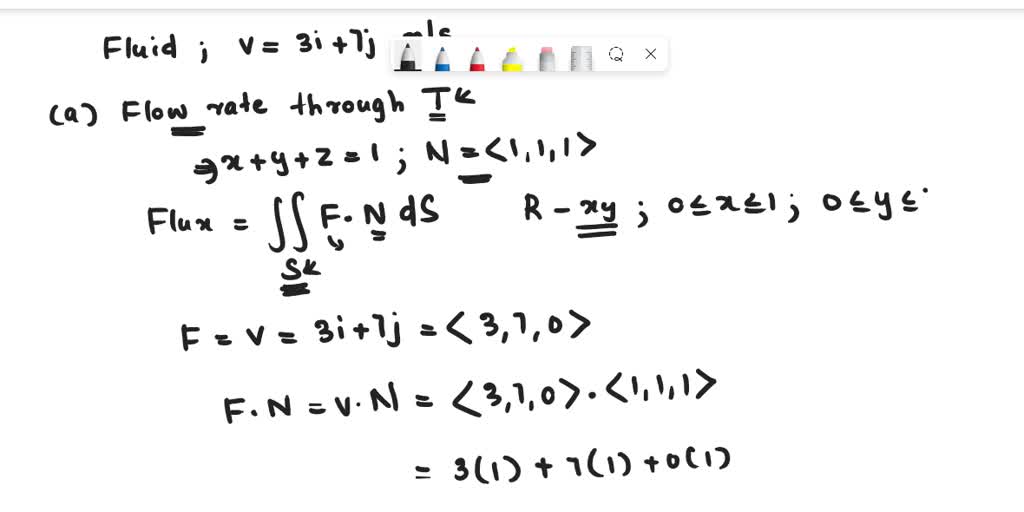 Fluid ; v = 3i + 7j m/s
(a) Flow rate through T
⇒ x + y + z = 1 ; N = <1,1,1>
Flux = ∬ F · N dS R - xy ; 0 ≤ x ≤ 1 ; 0 ≤ y ≤
S
F = v = 3i + 7j = <3,7,0>
F · N = v · N = <3,7,0> · <1,1,1>
= 3(1) + 7(1) + 0(1)